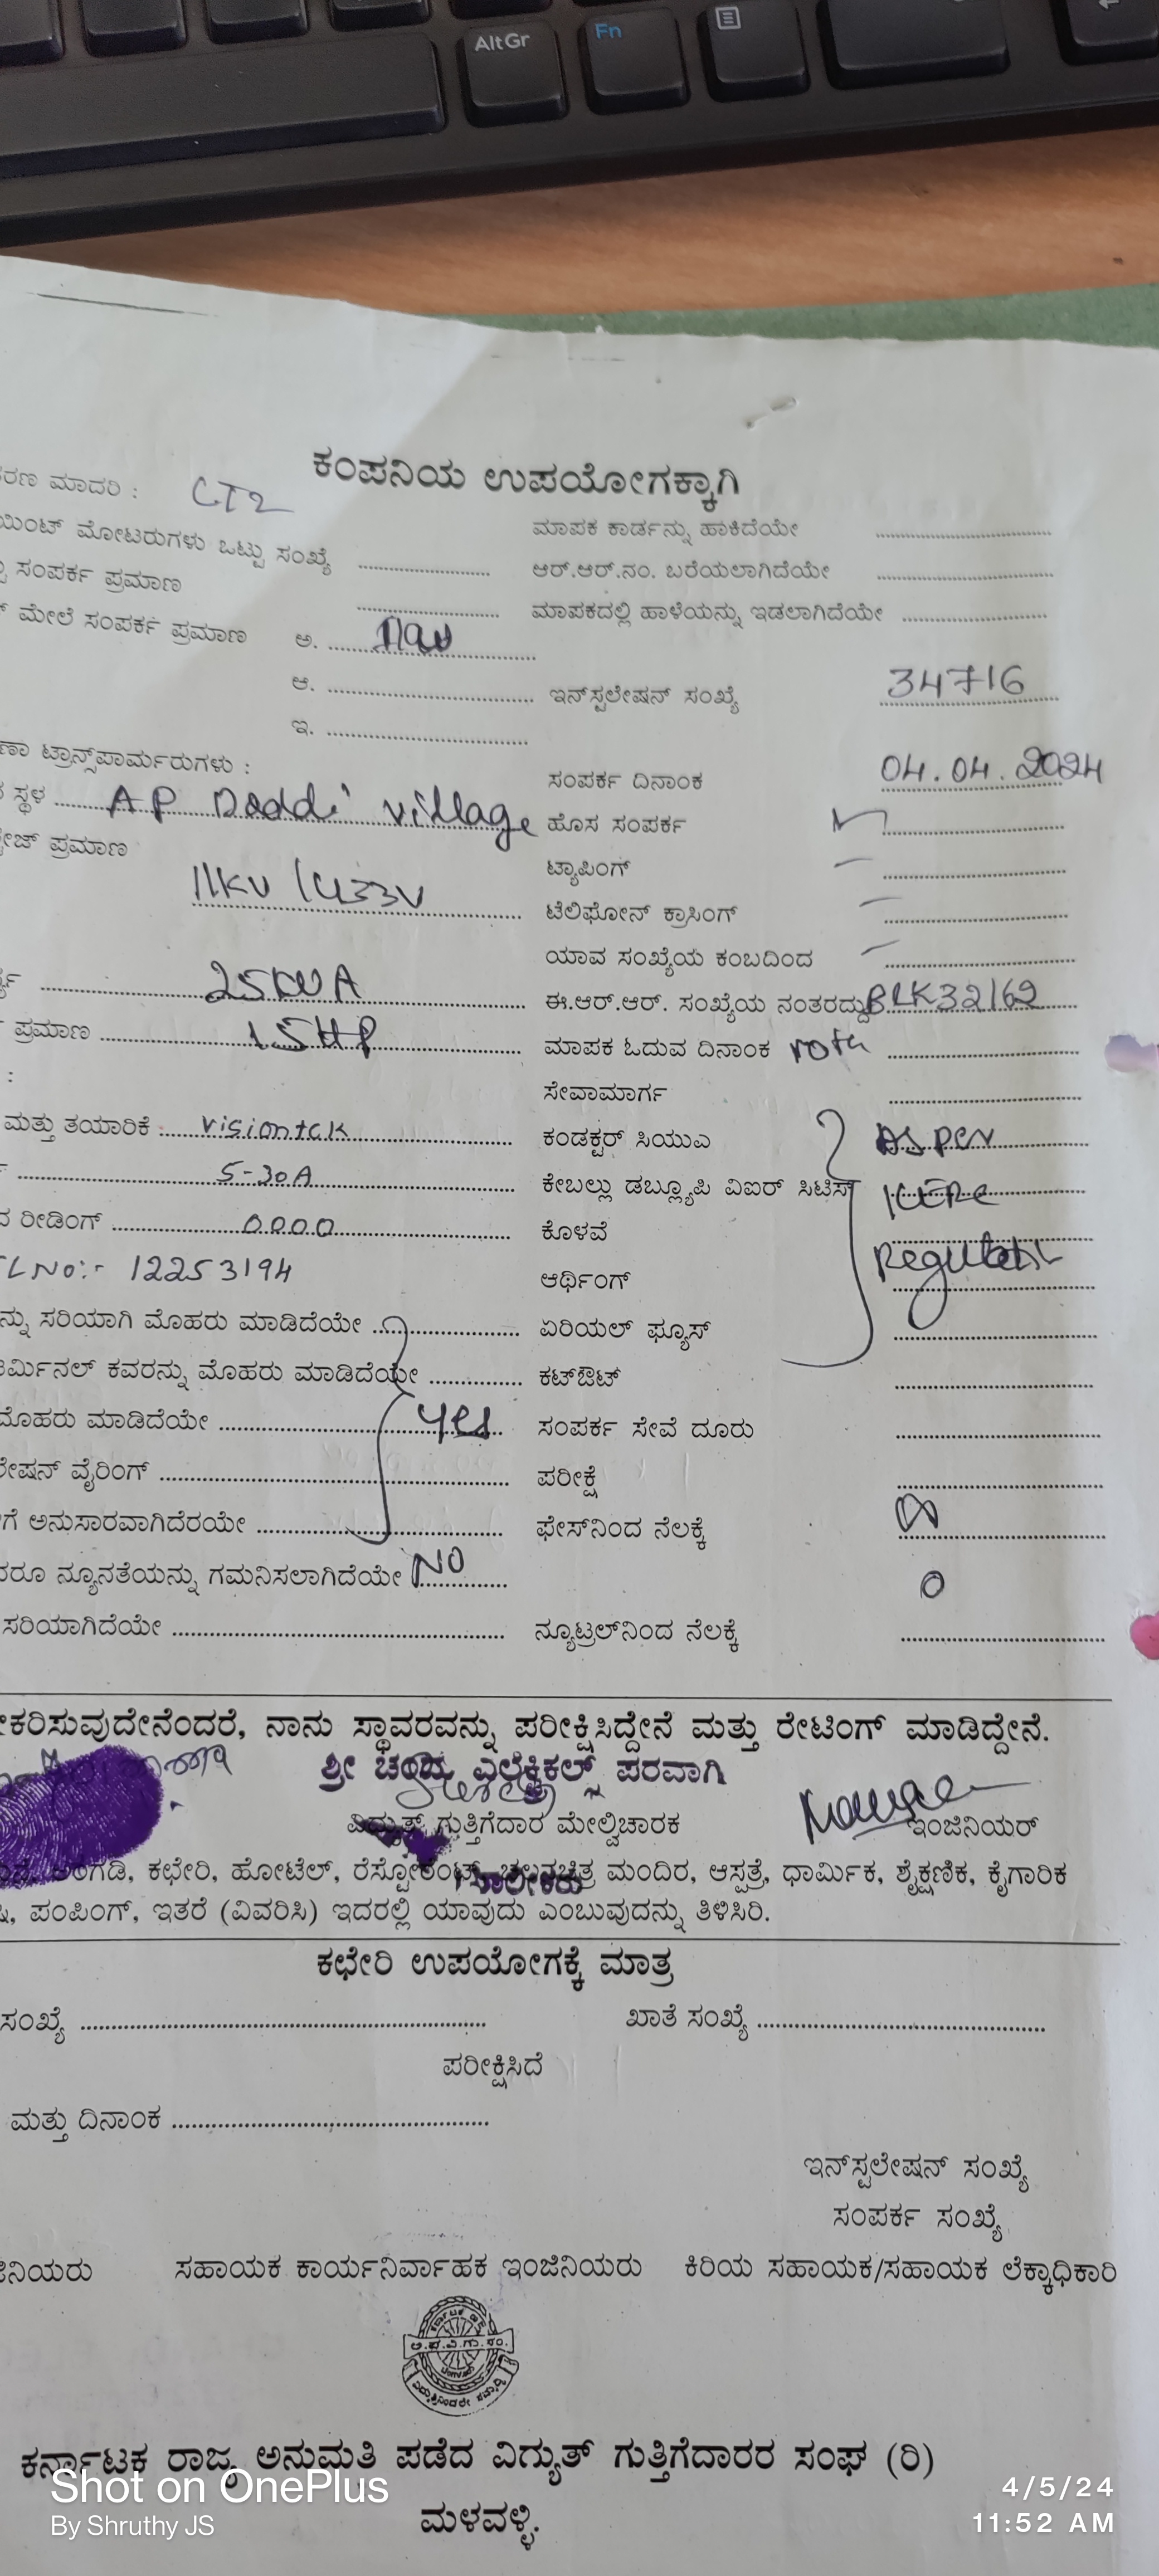 Alt Gr
Fn
ಕಂಪನಿಯ ಉಪಯೋಗಕ್ಕಾಗಿ
ಮಾದರಿ : CT2
ಮಾಪಕ ಕಾರ್ಡನ್ನು ಹಾಕಿದೆಯೇ
ಮೋಟರುಗಳು ಒಟ್ಟು ಸಂಖ್ಯೆ
ಆರ್.ಆರ್.ನಂ. ಬರೆಯಲಾಗಿದೆಯೇ
ಸಂಪರ್ಕ ಪ್ರಮಾಣ
ಮಾಪಕದಲ್ಲಿ ಹಾಳೆಯನ್ನು ಇಡಲಾಗಿದೆಯೇ
ಮೇಲೆ ಸಂಪರ್ಕ ಪ್ರಮಾಣ ಅ.
ಆ.
ಇನ್‌ಸ್ಟಲೇಷನ್ ಸಂಖ್ಯೆ 34716
ಇ.
ಟ್ರಾನ್ಸ್‌ಪಾರ್ಮರುಗಳು :
ಸಂಪರ್ಕ ದಿನಾಂಕ 04.04.2024
ಸ್ಥಳ AP Doddi village
ಹೊಸ ಸಂಪರ್ಕ
ಪ್ರಮಾಣ 11KV / 433V
ಟ್ಯಾಪಿಂಗ್
ಟೆಲಿಫೋನ್ ಕ್ರಾಸಿಂಗ್
ಯಾವ ಸಂಖ್ಯೆಯ ಕಂಬದಿಂದ
25KVA
ಈ.ಆರ್.ಆರ್. ಸಂಖ್ಯೆಯ ನಂತರದ್ದು BLK32162
ಪ್ರಮಾಣ 15HP
ಮಾಪಕ ಓದುವ ದಿನಾಂಕ
:
ಸೇವಾಮಾರ್ಗ
ಮತ್ತು ತಯಾರಿಕೆ Visiontek
ಕಂಡಕ್ಟರ್ ಸಿಯುಎ As per
5-30A
ಕೇಬಲ್ಲು ಡಬ್ಲ್ಯೂಪಿ ವಿಐಆರ್ ಸಿಟಿಸ್ KERC
ರೀಡಿಂಗ್ 0000
ಕೊಳವೆ
No:- 12253194
ಆರ್ಥಿಂಗ್
ಸರಿಯಾಗಿ ಮೊಹರು ಮಾಡಿದೆಯೇ
ಏರಿಯಲ್ ಫ್ಯೂಸ್
ಕವರನ್ನು ಮೊಹರು ಮಾಡಿದೆಯೇ
ಕಟ್‌ಔಟ್
ಮೊಹರು ಮಾಡಿದೆಯೇ yes
ಸಂಪರ್ಕ ಸೇವೆ ದೂರು
ವೈರಿಂಗ್
ಪರೀಕ್ಷೆ
ಅನುಸಾರವಾಗಿದೆರಯೇ
ಫೇಸ್‌ನಿಂದ ನೆಲಕ್ಕೆ
ನ್ಯೂನತೆಯನ್ನು ಗಮನಿಸಲಾಗಿದೆಯೇ NO
0
ಸರಿಯಾಗಿದೆಯೇ
ನ್ಯೂಟ್ರಲ್‌ನಿಂದ ನೆಲಕ್ಕೆ
ನಾನು ಸ್ಥಾವರವನ್ನು ಪರೀಕ್ಷಿಸಿದ್ದೇನೆ ಮತ್ತು ರೇಟಿಂಗ್ ಮಾಡಿದ್ದೇನೆ.
ಶ್ರೀ ಎಲೆಕ್ಟ್ರಿಕಲ್ಸ್ ಪರವಾಗಿ
ವಿದ್ಯುತ್ ಗುತ್ತಿಗೆದಾರ ಮೇಲ್ವಿಚಾರಕ
ಇಂಜಿನಿಯರ್
ಅಂಗಡಿ, ಕಛೇರಿ, ಹೋಟೆಲ್, ರೆಸ್ಟೋರೆಂಟ್, ಚಲನಚಿತ್ರ ಮಂದಿರ, ಆಸ್ಪತ್ರೆ, ಧಾರ್ಮಿಕ, ಶೈಕ್ಷಣಿಕ, ಕೈಗಾರಿಕ
ಪಂಪಿಂಗ್, ಇತರೆ (ವಿವರಿಸಿ) ಇದರಲ್ಲಿ ಯಾವುದು ಎಂಬುವುದನ್ನು ತಿಳಿಸಿರಿ.
ಕಛೇರಿ ಉಪಯೋಗಕ್ಕೆ ಮಾತ್ರ
ಸಂಖ್ಯೆ
ಖಾತೆ ಸಂಖ್ಯೆ
ಪರೀಕ್ಷಿಸಿದೆ
ಮತ್ತು ದಿನಾಂಕ
ಇನ್‌ಸ್ಟಲೇಷನ್ ಸಂಖ್ಯೆ
ಸಂಪರ್ಕ ಸಂಖ್ಯೆ
ಸಹಾಯಕ ಕಾರ್ಯನಿರ್ವಾಹಕ ಇಂಜಿನಿಯರು
ಕಿರಿಯ ಸಹಾಯಕ/ಸಹಾಯಕ ಲೆಕ್ಕಾಧಿಕಾರಿ
ಕರ್ನಾಟಕ ರಾಜ್ಯ ಅನುಮತಿ ಪಡೆದ ವಿದ್ಯುತ್ ಗುತ್ತಿಗೆದಾರರ ಸಂಘ (ರಿ)
ಮಳವಳ್ಳಿ.
Shot on OnePlus
By Shruthy JS
4/5/24
11:52 AM